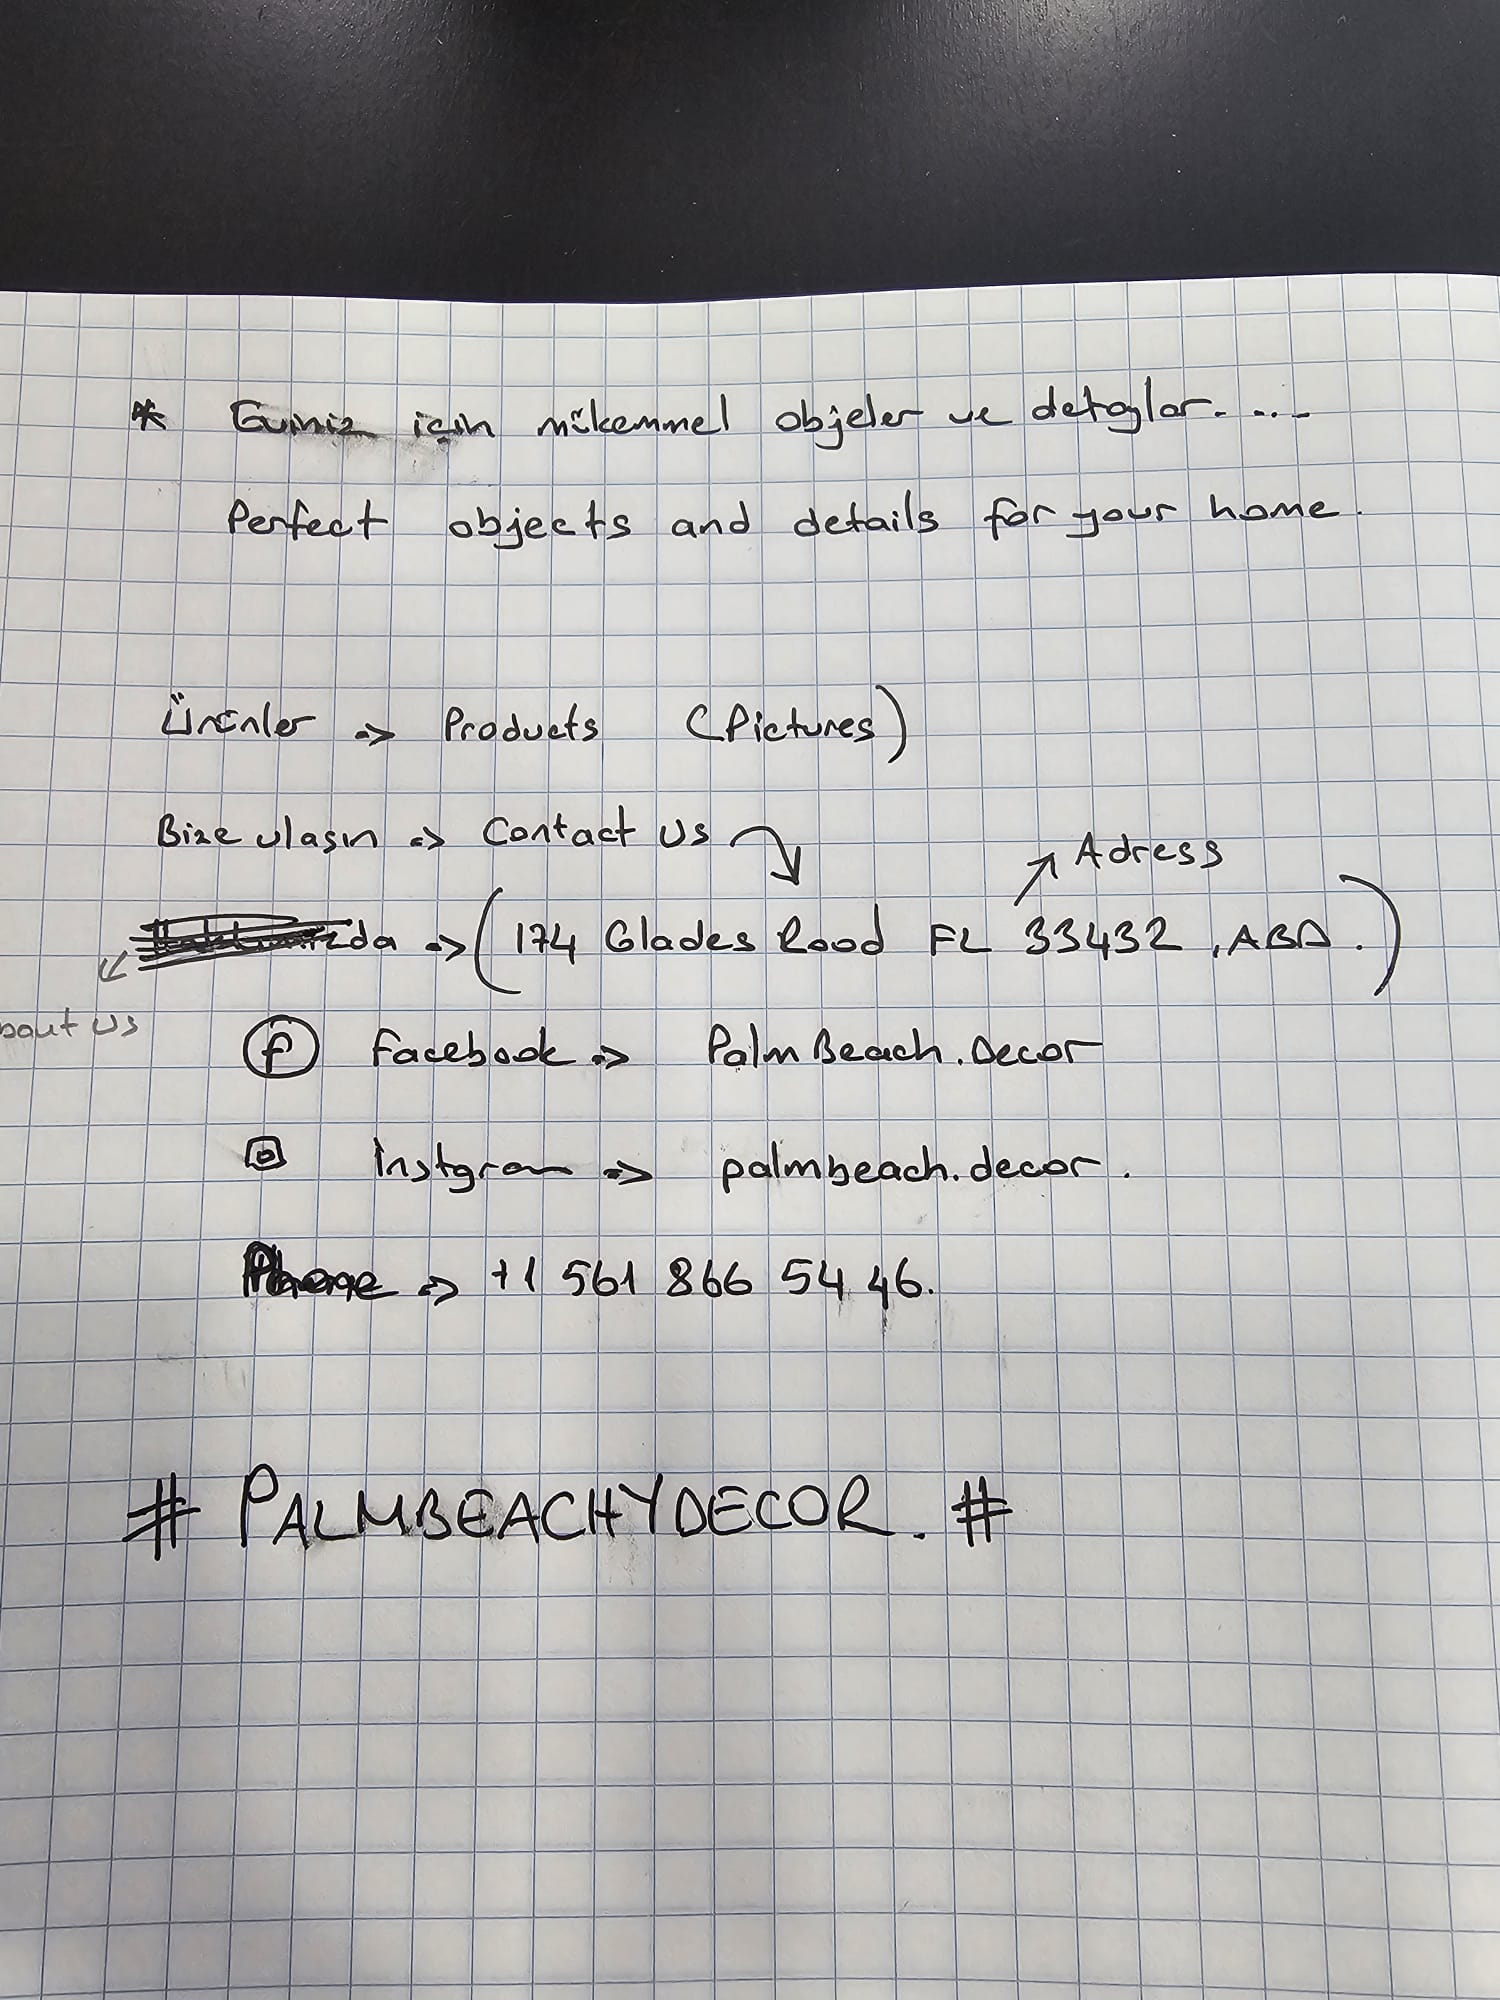 * Eviniz için mükemmel objeler ve detaylar. ...
Perfect objects and details for your home.
Ürünler => Products (Pictures)
Bize ulaşın => Contact Us
Adress
=> (174 Glades Road FL 33432, ABD.)
bout us
f Facebook => PalmBeach.Decor
İnstgram => palmbeach.decor.
Phone => +1 561 866 54 46.
# PALMBEACHYDECOR. #